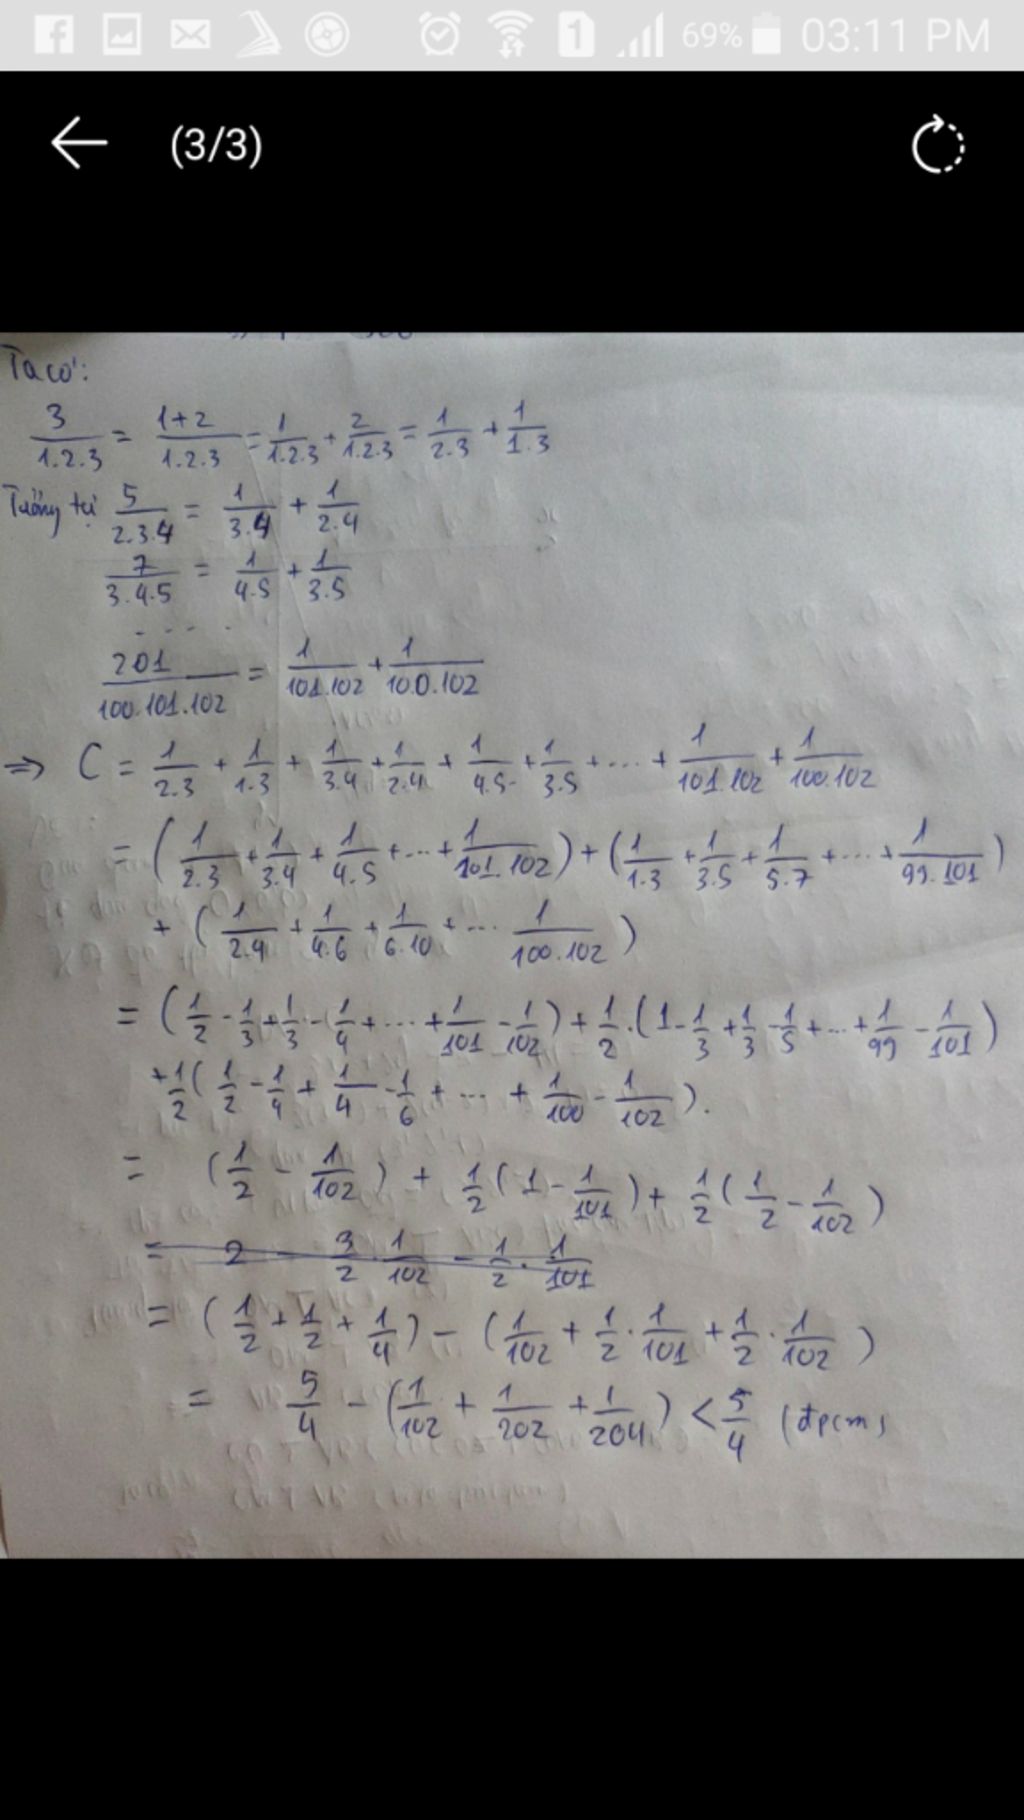 69% 03:11 PM
(3/3)
Ta có:
3/1.2.3 = 1+2/1.2.3 = 1/1.2.3 + 2/1.2.3 = 1/2.3 + 1/1.3
Tương tự 5/2.3.4 = 1/3.4 + 1/2.4
7/3.4.5 = 1/4.5 + 1/3.5
.....
201/100.101.102 = 1/101.102 + 1/100.102
⇒ C = 1/2.3 + 1/1.3 + 1/3.4 + 1/2.4 + 1/4.5 + 1/3.5 + ... + 1/101.102 + 1/100.102
= (1/2.3 + 1/3.4 + 1/4.5 + ... + 1/101.102) + (1/1.3 + 1/3.5 + 1/5.7 + ... + 1/99.101)
+ (1/2.4 + 1/4.6 + 1/6.10 + ... 1/100.102)
= (1/2 - 1/3 + 1/3 - 1/4 + ... + 1/101 - 1/102) + 1/2.(1 - 1/3 + 1/3 - 1/5 + ... + 1/99 - 1/101)
+ 1/2(1/2 - 1/4 + 1/4 - 1/6 + ... + 1/100 - 1/102).
= (1/2 - 1/102) + 1/2(1 - 1/101) + 1/2(1/2 - 1/102)
= 2 - 3/2.1/102 - 1/2.1/101
= (1/2 + 1/2 + 1/4) - (1/102 + 1/2.1/101 + 1/2.1/102)
= 5/4 - (1/102 + 1/202 + 1/204) < 5/4 (đpcm)